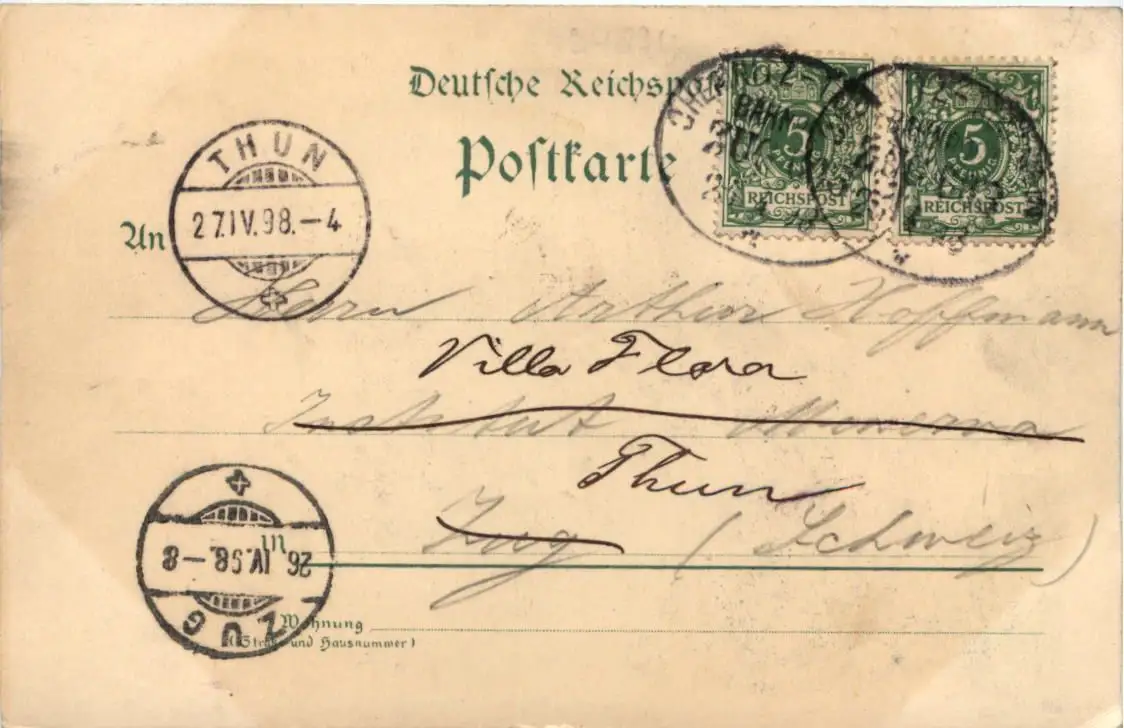 Deutsche Reichspost
Postkarte
5
PFENNIG
REICHSPOST
5
PFENNIG
REICHSPOST
CHEMNITZ
BAHN
THUN
27.IV.98.–4
An
Herrn Arthur Hoffmann
Villa Flora
Institut Minerva
Thun
Zug (Schweiz)
in
ZUG
26.IV.98.–8
Wohnung
(Straße und Hausnummer)